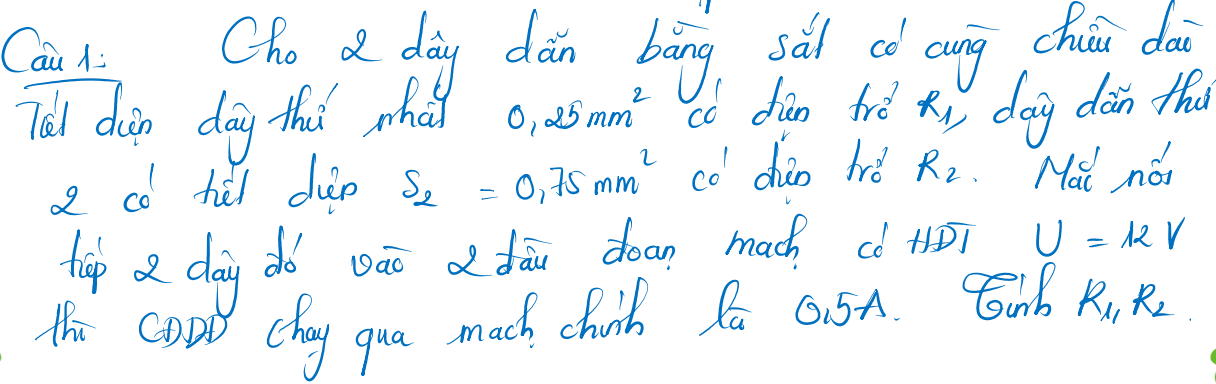 Câu 1: Cho 2 dây dẫn bằng sắt có cùng chiều dài
Tiết diện dây thứ nhất 0,25 mm² có điện trở R₁, dây dẫn thứ
2 có tiết diện S₂ = 0,75 mm² có điện trở R₂. Mắc nối
tiếp 2 dây đó vào 2 đầu đoạn mạch có HĐT U = 12 V
thì CĐDĐ chạy qua mạch chính là 0,5A. Tính R₁, R₂.